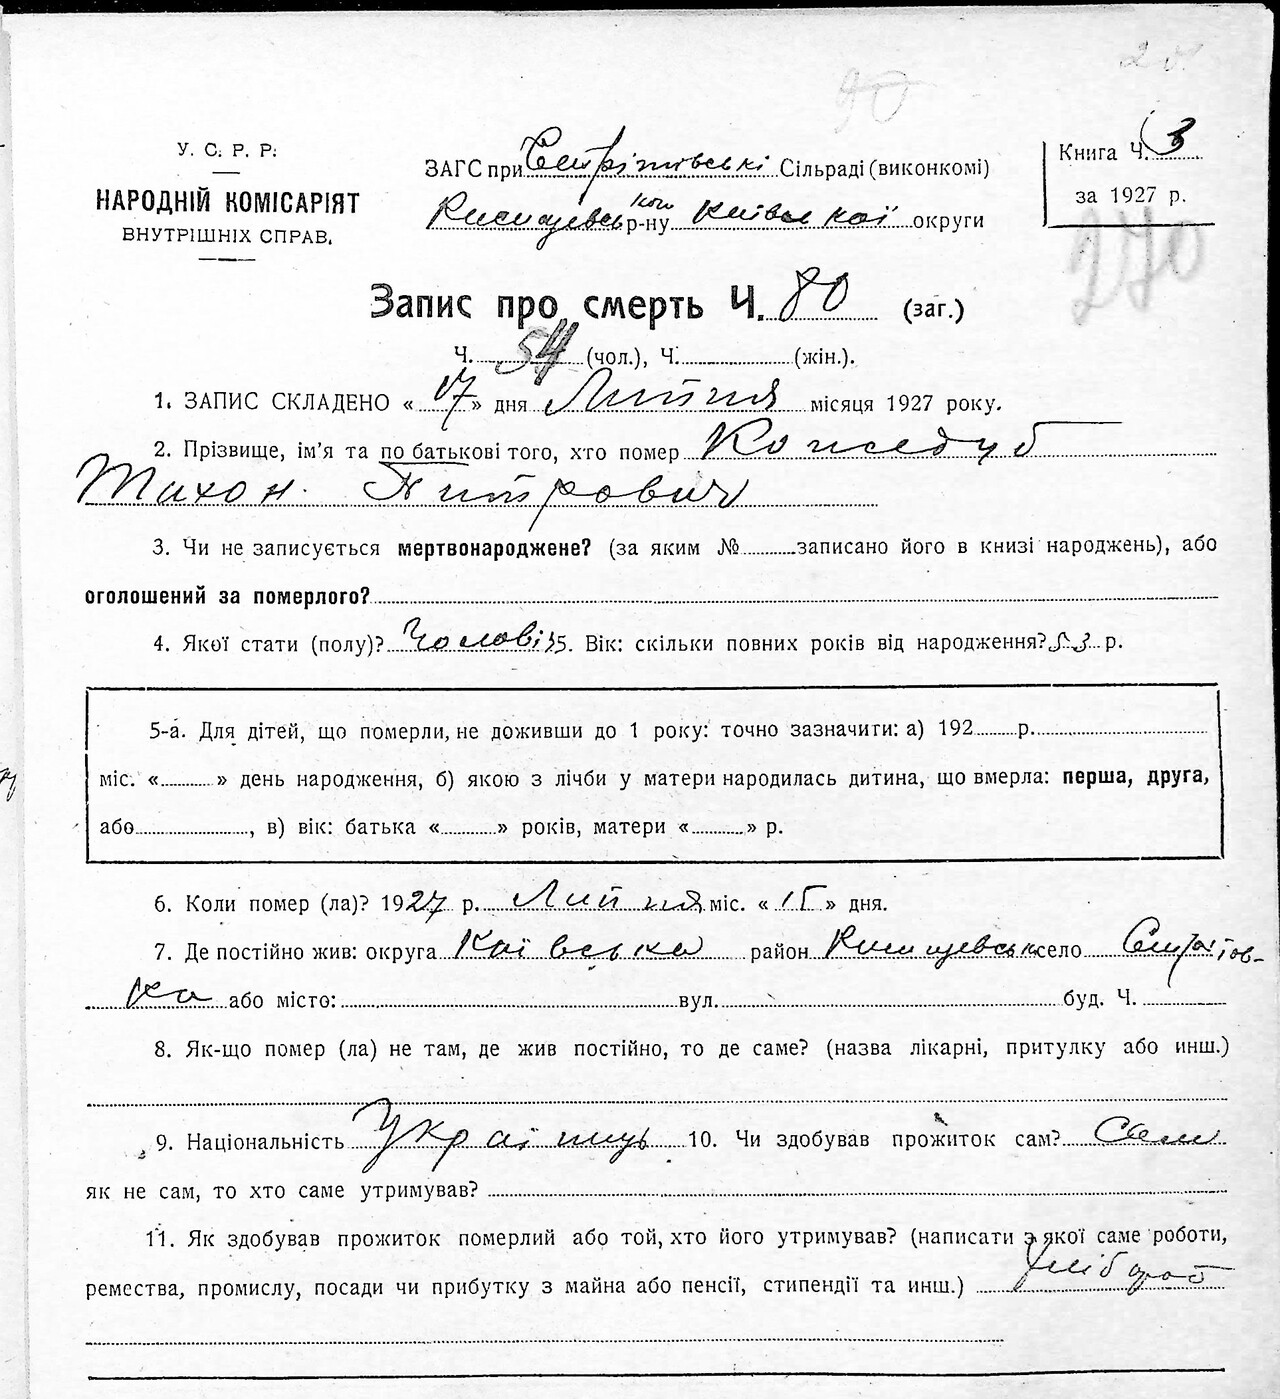 20
90
У. С. Р. Р.
НАРОДНІЙ КОМІСАРІЯТ
ВНУТРІШНІХ СПРАВ.
ЗАГС при Стрітівські Сільраді (виконкомі)
р-ну Київської округи
Книга Ч. 3
за 1927 р.
270
Запис про смерть Ч. 80 (заг.)
Ч. 54 (чол.), Ч. (жін.).
1. ЗАПИС СКЛАДЕНО « 17 » дня Липня місяця 1927 року.
2. Прізвище, ім'я та по батькові того, хто помер Кожедуб
Тихон Дмитрович
3. Чи не записується мертвонароджене? (за яким № записано його в книзі народжень), або
оголошений за померлого?
4. Якої стати (полу)? Чоловіч 5. Вік: скільки повних років від народження? 53 р.
5-а. Для дітей, що померли, не доживши до 1 року: точно зазначити: а) 192 р.
міс. « » день народження, б) якою з лічби у матери народилась дитина, що вмерла: перша, друга,
або , в) вік: батька « » років, матери « » р.
6. Коли помер (ла)? 1927 р. Липня міс. « 15 » дня.
7. Де постійно жив: округа Київська район село Стрітов-
ка або місто: вул. буд. Ч.
8. Як-що помер (ла) не там, де жив постійно, то де саме? (назва лікарні, притулку або инш.)
9. Національність Українць 10. Чи здобував прожиток сам? Сам
як не сам, то хто саме утримував?
11. Як здобував прожиток померлий або той, хто його утримував? (написати з якої саме роботи,
ремества, промислу, посади чи прибутку з майна або пенсії, стипендії та инш.) Хлібороб